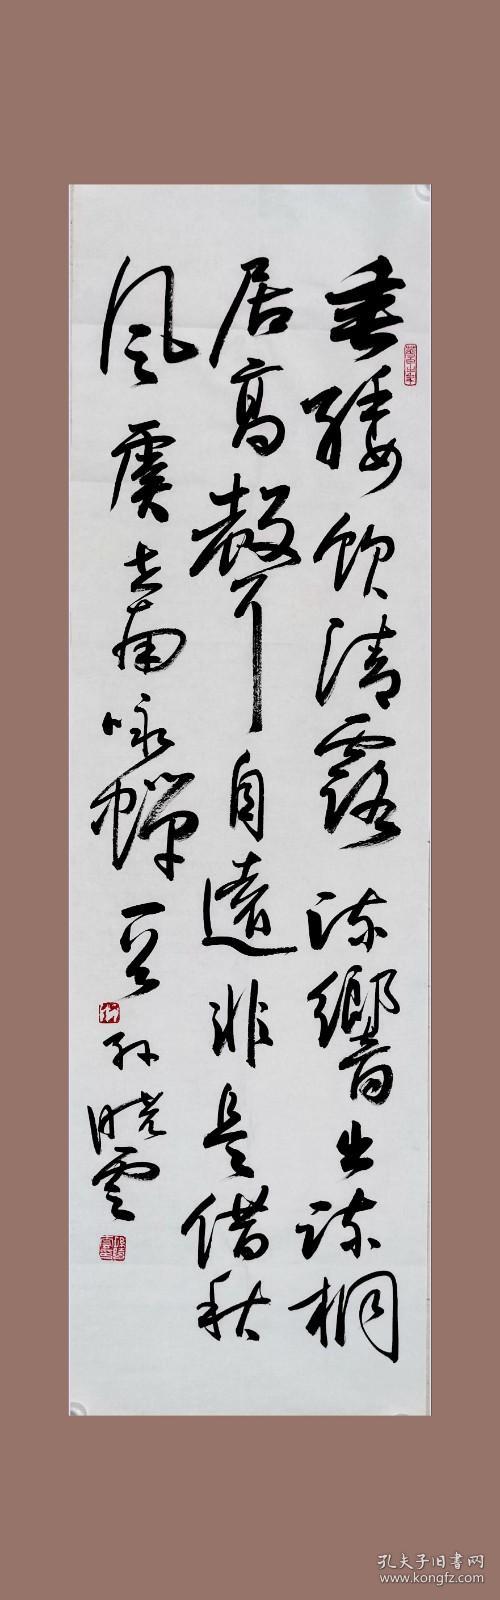 垂緌飲清露流響出疎桐
居高聲自遠非是借秋
風虞世南詠蟬一首孫曉雲
孔夫子旧书网
www.kongfz.com